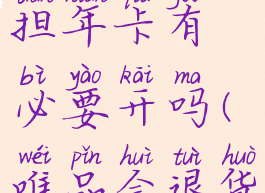 担年卡有
bì yào kāi ma
必要开吗(
wéi pǐn huì tuì huò
唯品会退货